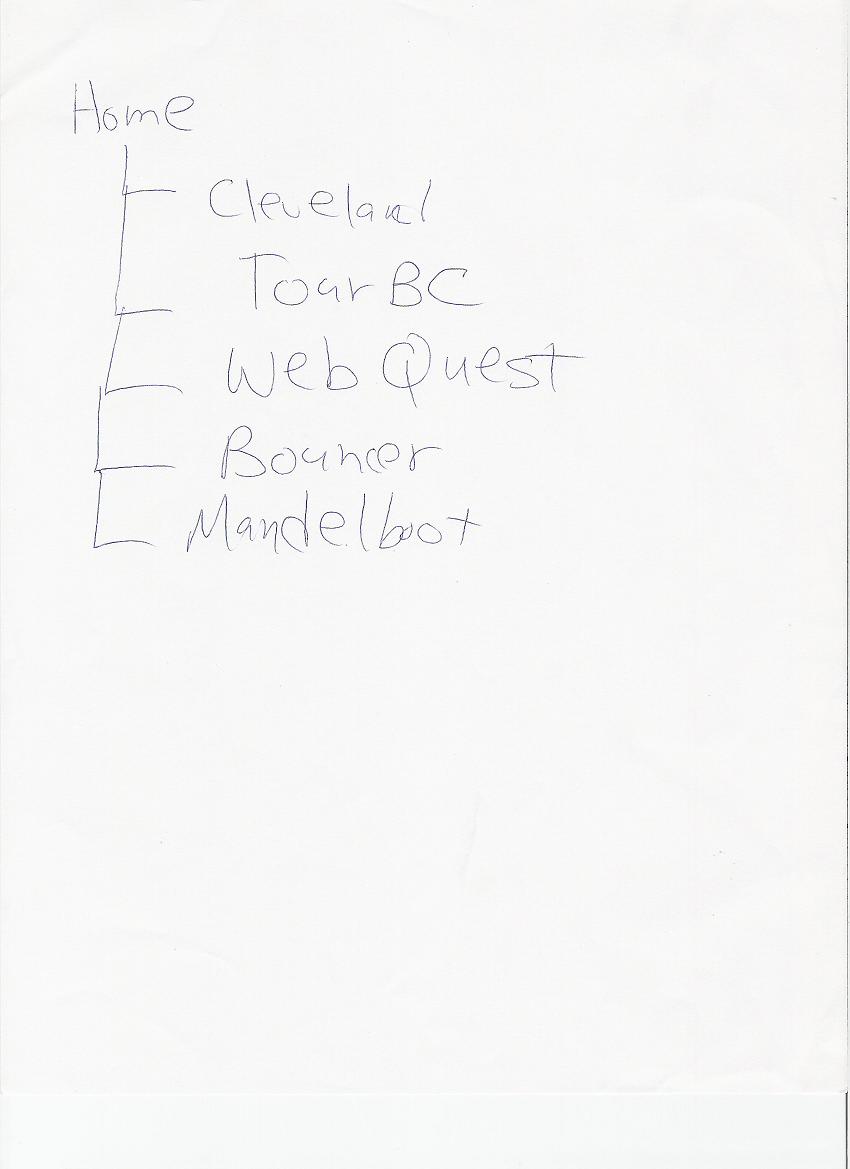 Home
Cleveland
Tour BC
Web Quest
Bouncer
Mandelboot